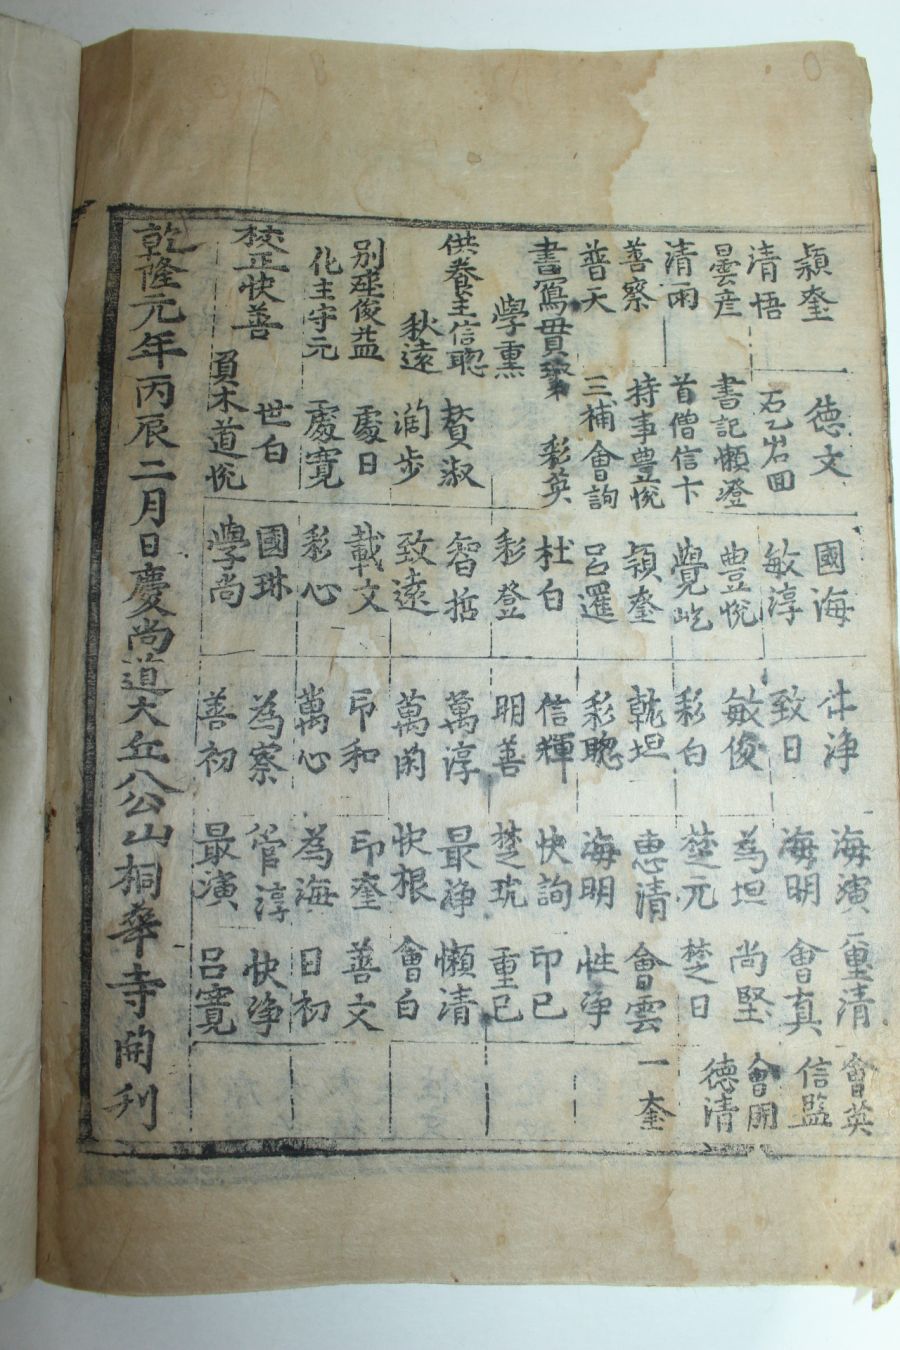 穎奎 德文 國海 上淨 海演 重清 會英
清悟 石乙屵回 敏淳 致日 海明 會真 信監
曇彦 書記懶澄 豊悅 敏俊 為坦 尚堅 會開
清雨 首僧信卞 覺屹 彩白 楚元 楚日 德清
善察 持事豊悅 穎奎 乾坦 惠清 會雲 一奎
普天 三補會詢 呂暹 彩聰 海明 性淨
書寫貫 彩英 杜白 信輝 快詢 印已
學熏 彩登 明善 楚玩 重已
供養主信聰 贊淑 智哲 萬淳 最淨 懶清
秋遠 潤步 致遠 萬闲 快根 會白
別座俊益 處日 載文 弔和 印奎 善文
化主守元 處寬 彩心 萬心 為海 日初
校正快善 世白 國琳 為察 管淳 快淨
負木道悅 學尚 善初 最演 呂寬
乾隆元年丙辰二月日慶尚道大丘八公山桐華寺開刊